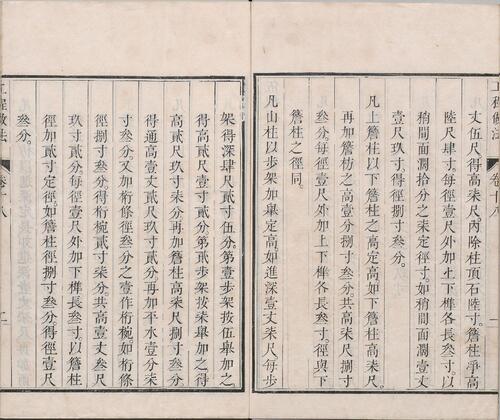 工程做法
卷十八
一
丈伍尺得高柒尺。內除柱頂石陸寸。簷柱淨高
陸尺肆寸。每徑壹尺外加上下榫各長叁寸。以
稍間面濶拾分之柒定徑寸。如稍間面濶壹丈
壹尺玖寸。得徑捌寸叁分。
凡上簷柱以下簷柱之高定高。如下簷柱高柒尺。
再加簷枋之高壹分捌寸叁分。共高柒尺捌寸
叁分。每徑壹尺外加上下榫各長叁寸。徑與下
簷柱之徑同。
凡山柱以步架加舉定高。如進深壹丈柒尺。每步
架得深肆尺貳寸伍分。第壹步架按伍舉加之。
得高貳尺壹寸貳分。第貳步架按柒舉加之。得
高貳尺玖寸柒分。再加簷柱高柒尺捌寸叁分。
得通高壹丈貳尺玖寸貳分。再加平水壹分柒
寸叁分。又加桁條徑叁分之壹作桁椀。如桁條
徑捌寸叁分。得桁椀貳寸柒分。共高壹丈叁尺
玖寸貳分。每徑壹尺外加下榫長叁寸。以簷柱
徑加貳寸定徑。如簷柱徑捌寸叁分。得徑壹尺
叁分。
工程做法
卷十八
二